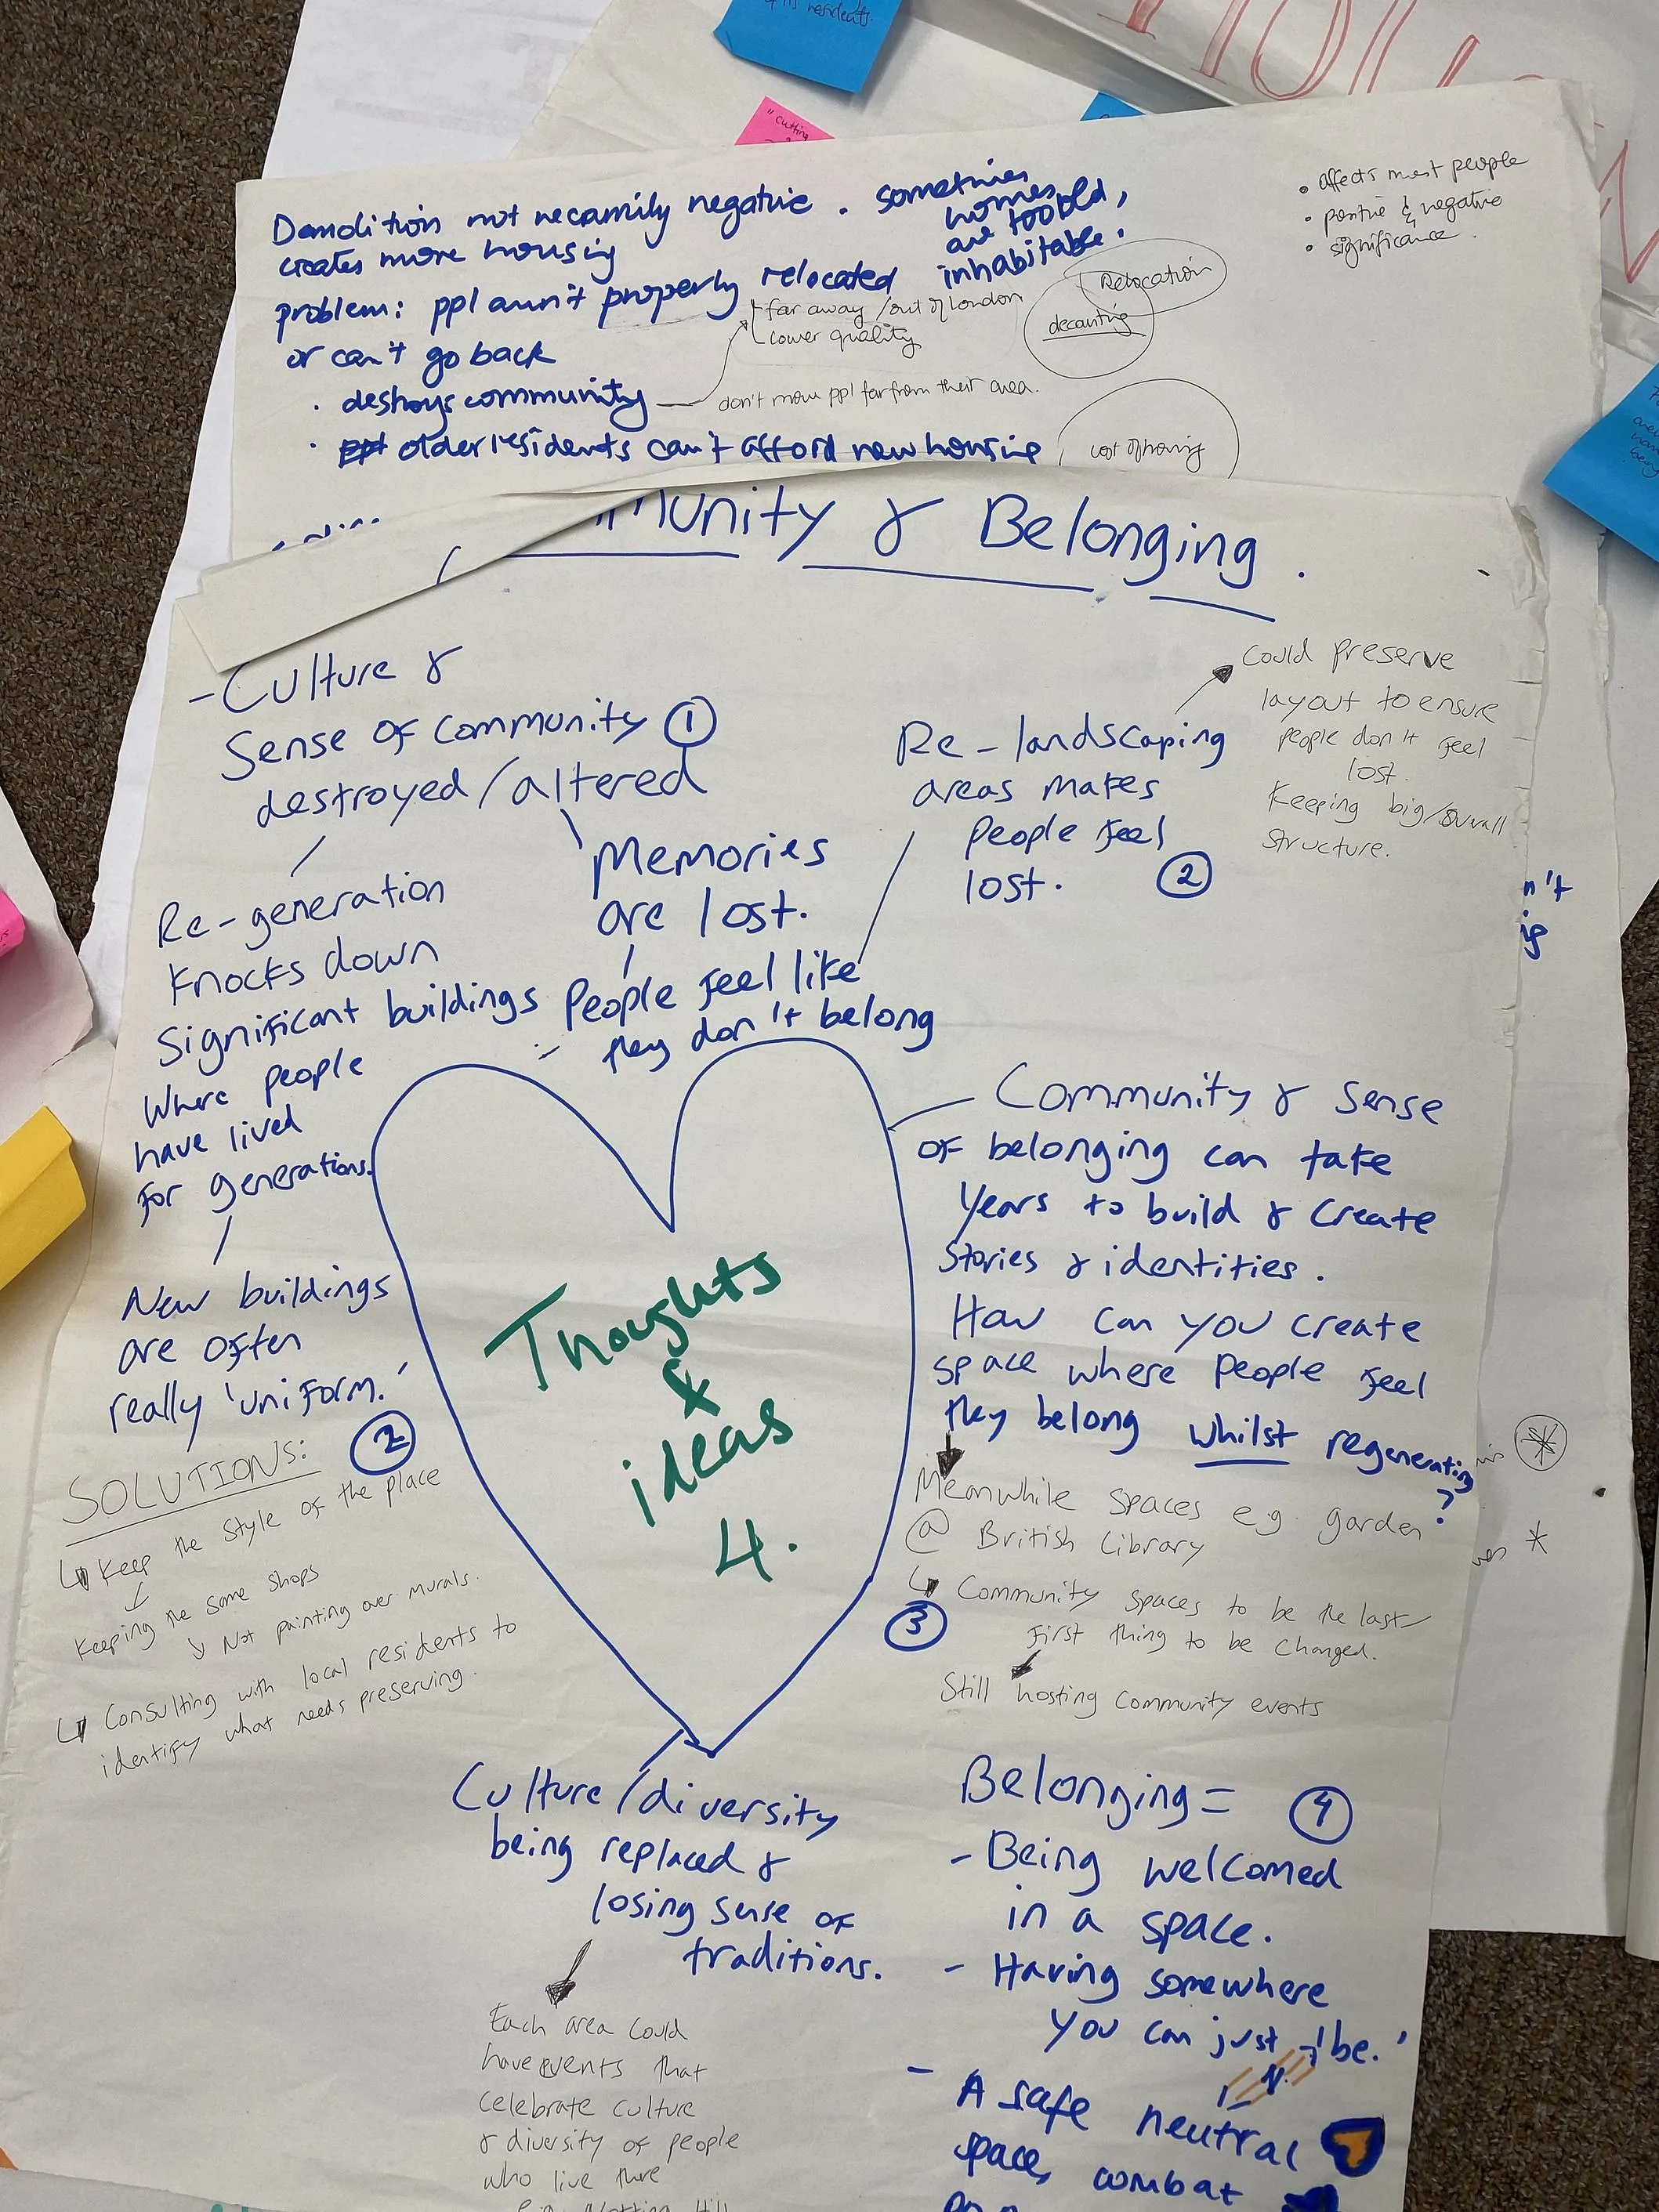 residents.
"cutting
Demolition not necessarily negative. sometimes
homes
are too old,
inhabitable.
creates more housing
problem: ppl aren't properly relocated
or can't go back
far away / out of London
Lower quality
Relocation
decanting
• affects most people
• positive & negative
• significance.
• destroys community
don't move ppl far from their area.
• ppl older residents can't afford new housing
cost of housing
munity & Belonging.
- Culture &
Sense of Community 1
destroyed/altered
Memories
are lost.
People feel like
they don't belong
Re-landscaping
areas makes
people feel
lost. 2
Could preserve
layout to ensure
people don't feel
lost.
Keeping big/overall
structure.
n't
Re-generation
knocks down
Significant buildings
where people
have lived
for generations.
New buildings
are often
really 'uniform.'
2
SOLUTIONS:
Keep the style of the place
Keeping the same shops
Not painting over murals.
Consulting with local residents to
identify what needs preserving.
Thoughts
&
ideas
4.
Community & Sense
of belonging can take
years to build & create
stories & identities.
How can you create
space where people feel
they belong whilst regenerating
?
Meanwhile spaces e.g. garden
@ British Library
3
Community spaces to be the last/
first thing to be changed.
Still hosting community events
Culture/diversity
being replaced &
losing sense of
traditions.
Each area could
have events that
celebrate culture
& diversity of people
who live there
e.g. Notting Hill
Belonging = 4
- Being welcomed
in a space.
- Having somewhere
you can just 'be.'
- A safe neutral
space, combat